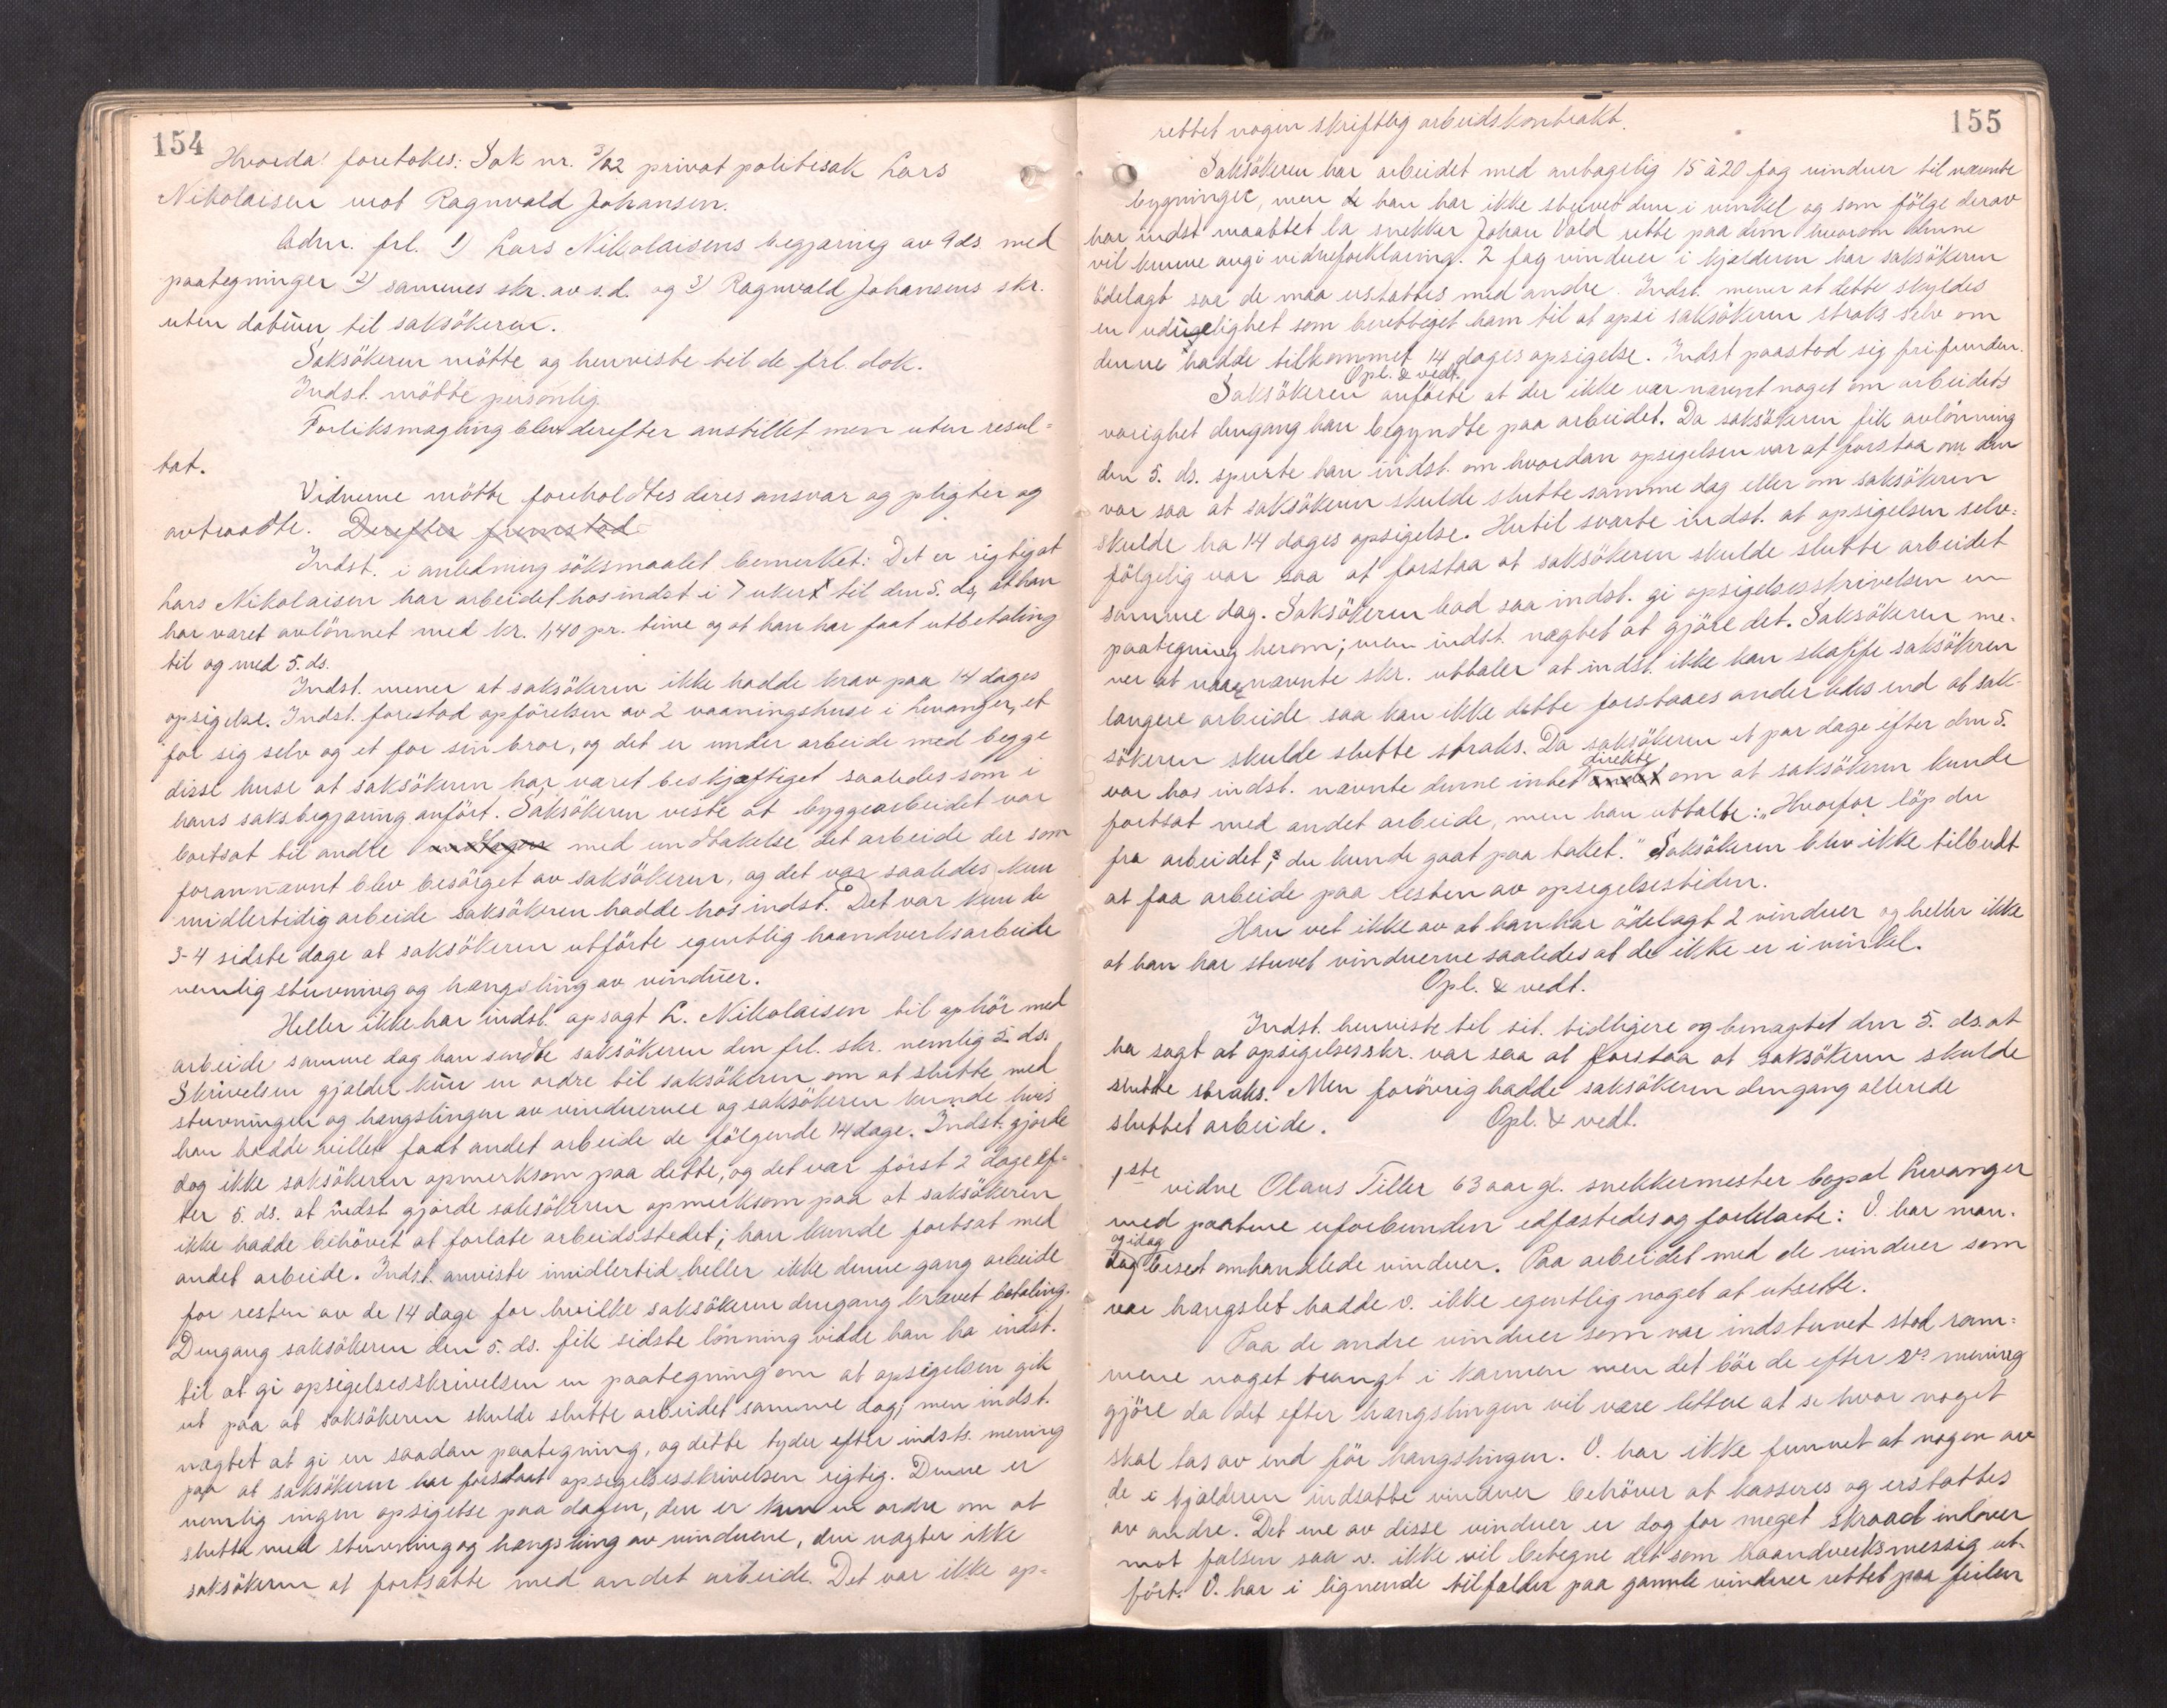 154
Hvorda! foretokes: Sak nr. 3/22 privat politisak Lars
Nikolaisen mot Ragnvald Johansen.
Adm. frl. 1) Lars Nikolaisens begjæring av 9 ds med
paategninger 2) sammes skr. av s.d. og 3) Ragnvald Johansens skr.
uten datum til saksökeren.
Saksökeren mötte og henviste til de frl. dok.
Indst. mötte personlig.
Forliksmægling blev derefter anstillet men uten resul-
tat.
Vidnerne mötte foreholdtes deres ansvar og pligter og
avtraadte. Derefter fremstod
Indst. i anledning söksmaalet bemerket: Det er rigtig at
Lars Nikolaisen har arbeidet hos indst i 7 uker til den 5. ds, at han
har været avlönnet med kr. 1,40 pr. time og at han har faat utbetaling
til og med 5. ds.
Indst. mener at saksökeren ikke hadde krav paa 14 dages
opsigelse. Indst. forestod opförelsen av 2 vaaningshuse i Levanger, et
for sig selv og et for sin bror, og det er under arbeide med begge
disse huse at saksökeren har været beskjæftiget saaledes som i
hans saksbegjæring anfört. Saksökeren viste at byggearbeidet var
bortsat til andre med undtakelse det arbeide der som
forannævnt blev besörget av saksökeren, og det var saaledes kun
midlertidig arbeide saksökeren hadde hos indst. Det var kun de
3-4 sidste dage at saksökeren utförte egentlig haandverksarbeide
nemlig stuvning og hængsling av vinduer.
Heller ikke har indst. opsagt L. Nikolaisen til ophör med
arbeide samme dag han sendte saksökeren den frl. skr. nemlig 5. ds.
Skrivelsen gjælder kun en ordre til saksökeren om at slutte med
stuvningen og hængslingen av vinduerne og saksökeren kunde hvis
han hadde villet faat andet arbeide de fölgende 14 dage. Indst. gjorde
dog ikke saksökeren opmerksom paa dette, og det var först 2 dage ef-
ter 5. ds. at indst. gjorde saksökeren opmerksom paa at saksökeren
ikke hadde behövet at forlate arbeidsstedet; han kunde fortsat med
andet arbeide. Indst. anviste imidlertid heller ikke denne gang arbeide
for resten av de 14 dage for hvilke saksökeren dengang krævet betaling.
Dengang saksökeren den 5. ds. fik sidste lönning vilde han ha indst.
til at gi opsigelsesskrivelsen en paategning om at opsigelsen gik
ut paa at saksökeren skulde slutte arbeidet samme dag; men indst.
nægtet at gi en saadan paategning, og dette tyder efter indsts. mening
paa at saksökeren har forstaat opsigelsesskrivelsen rigtig. Denne er
nemlig ingen opsigelse paa dagen, den er kun en ordre om at
slutte med stuvning og hængsling av vinduerne, den nægter ikke
saksökeren at fortsætte med andet arbeide. Det var ikke op-
155
rettet nogen skriftlig arbeidskontrakt.
Saksökeren har arbeidet med antagelig 15 à 20 fag vinduer til nævnte
bygninger, men han har ikke stuvet dem i vinkel og som fölge derav
har indst maattet la snekker Johan Vold rette paa dem hvorom denne
vil kunne avgi vidneforklaring. 2 fag vinduer i kjelderen har saksökeren
ödelagt saa de maa erstattes med andre. Indst. mener at dette skyldes
en udygelighet som berettiget ham til at opsi saksökeren straks selv om
denne hadde tilkommet 14 dages opsigelse. Indst paastod sig frifunden.
Opl. & vedt.
Saksökeren anförte at der ikke var nævnt noget om arbeidets
varighet dengang han begyndte paa arbeidet. Da saksökeren fik avlönning
den 5. ds. spurte han indst. om hvordan opsigelsen var at forstaa om den
var saa at saksökeren skulde slutte samme dag eller om saksökeren
skulde ha 14 dages opsigelse. Hertil svarte indst. at opsigelsen selv-
fölgelig var saa at forstaa at saksökeren skulde slutte arbeidet
samme dag. Saksökeren bad saa indst. gi opsigelsesskrivelsen en
paategning herom; men indst. nægtet at gjöre det. Saksökeren me-
ner at naar nævnte skr. uttaler at indst. ikke kan skaffe saksökeren
længere arbeide saa kan ikke dette forstaaes anderledes end at sak-
sökeren skulde slutte straks. Da saksökeren et par dage efter den 5.
var hos indst. nævnte denne intet direkte om at saksökeren kunde
fortsat med andet arbeide, men han uttalte: "Hvorfor löp du
fra arbeidet, du kunde gaat paa taket." Saksökeren blev ikke tilbudt
at faa arbeide paa resten av opsigelsestiden.
Han vet ikke av at han har ödelagt 2 vinduer og heller ikke
at han har stuvet vinduerne saaledes at de ikke er i vinkel.
Opl. & vedt.
Indst. henviste til sit tidligere og benægtet den 5. ds. at
ha sagt at opsigelsesskr. var saa at forstaa at saksökeren skulde
slutte straks. Men forövrig hadde saksökeren dengang allerede
sluttet arbeide. Opl. & vedt.
1ste vidne Olaus Tiller 63 aar gl. snekkermester bopæl Levanger
med parterne uforbunden edfæstedes og forklarte: V. har man-
dag og idag beset omhandlede vinduer. Paa arbeidet med de vinduer som
var hængslet hadde v. ikke egentlig noget at utsætte.
Paa de andre vinduer som var indstuvet stod ram-
mene noget trangt i karmen men det bör de efter vs mening
gjöre da det efter hængslingen vil være lettere at se hvor noget
skal tas av end för hængslingen. V. har ikke funnet at nogen av
de i kjælderen indsatte vinduer behöver at kasseres og erstattes
av andre. Det ene av disse vinduer er dog for meget skraaet indover
mot falsen saa v. ikke vil betegne det som haandverksmessig ut-
fört. V. har i lignende tilfælder paa gamle vinduer rettet paa feilen